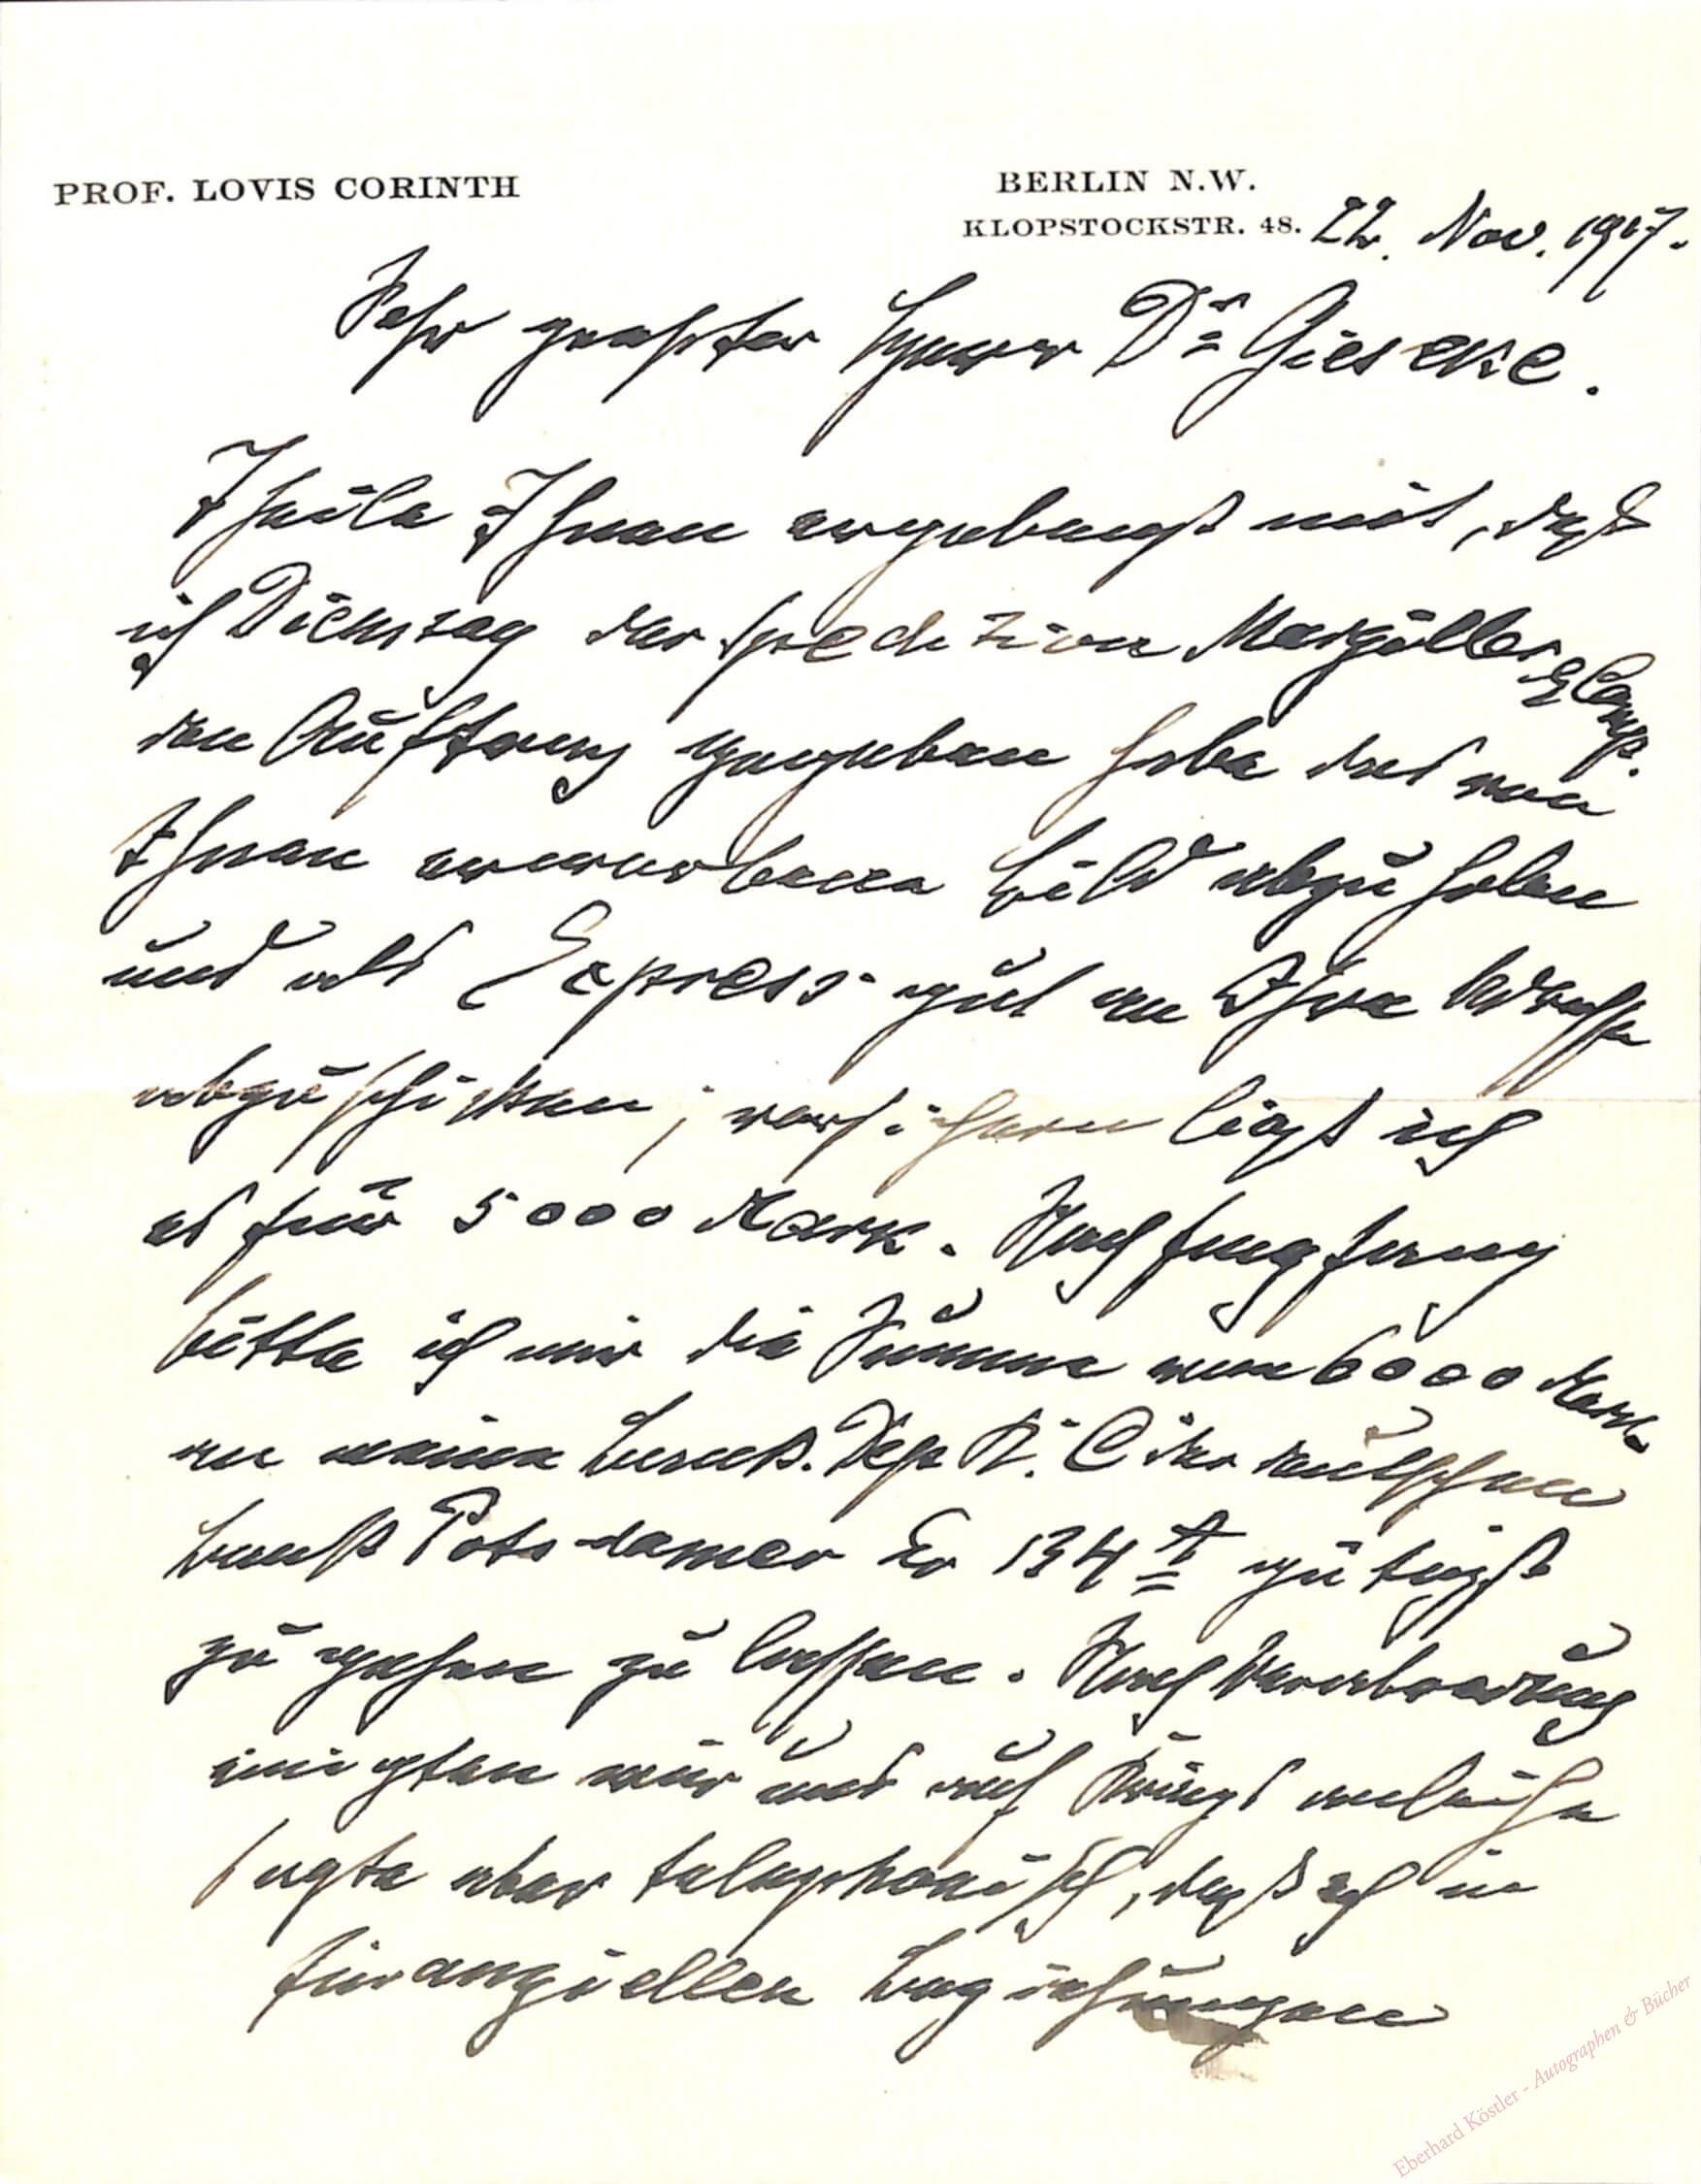 PROF. LOVIS CORINTH
BERLIN N.W.
KLOPSTOCKSTR. 48. 22. Nov. 1917.
Sehr geehrter Herr Dr Gieseke.
Theile Ihnen ergebenst mit, daß
ich Dienstag der Spedition & Comp.
den Auftrag gegeben habe das von
Ihnen erworbene Bild abzuholen
und als Express-gut an Ihre Adresse
abzuschicken; versichern ließ ich
es für 5000 Mark. Nach Empfang
bitte ich mir die Summe von 6000 Mark
an meine Bank. Dep. K. C der deutschen
Bank Potsdamer Str 134 A gütigst
zu gehen zu lassen. Nach Verabredung
einigten wir uns auf
sagte aber telephonisch, daß ich in
finanziellen Beziehungen
Eberhard Köstler - Autographen & Bücher